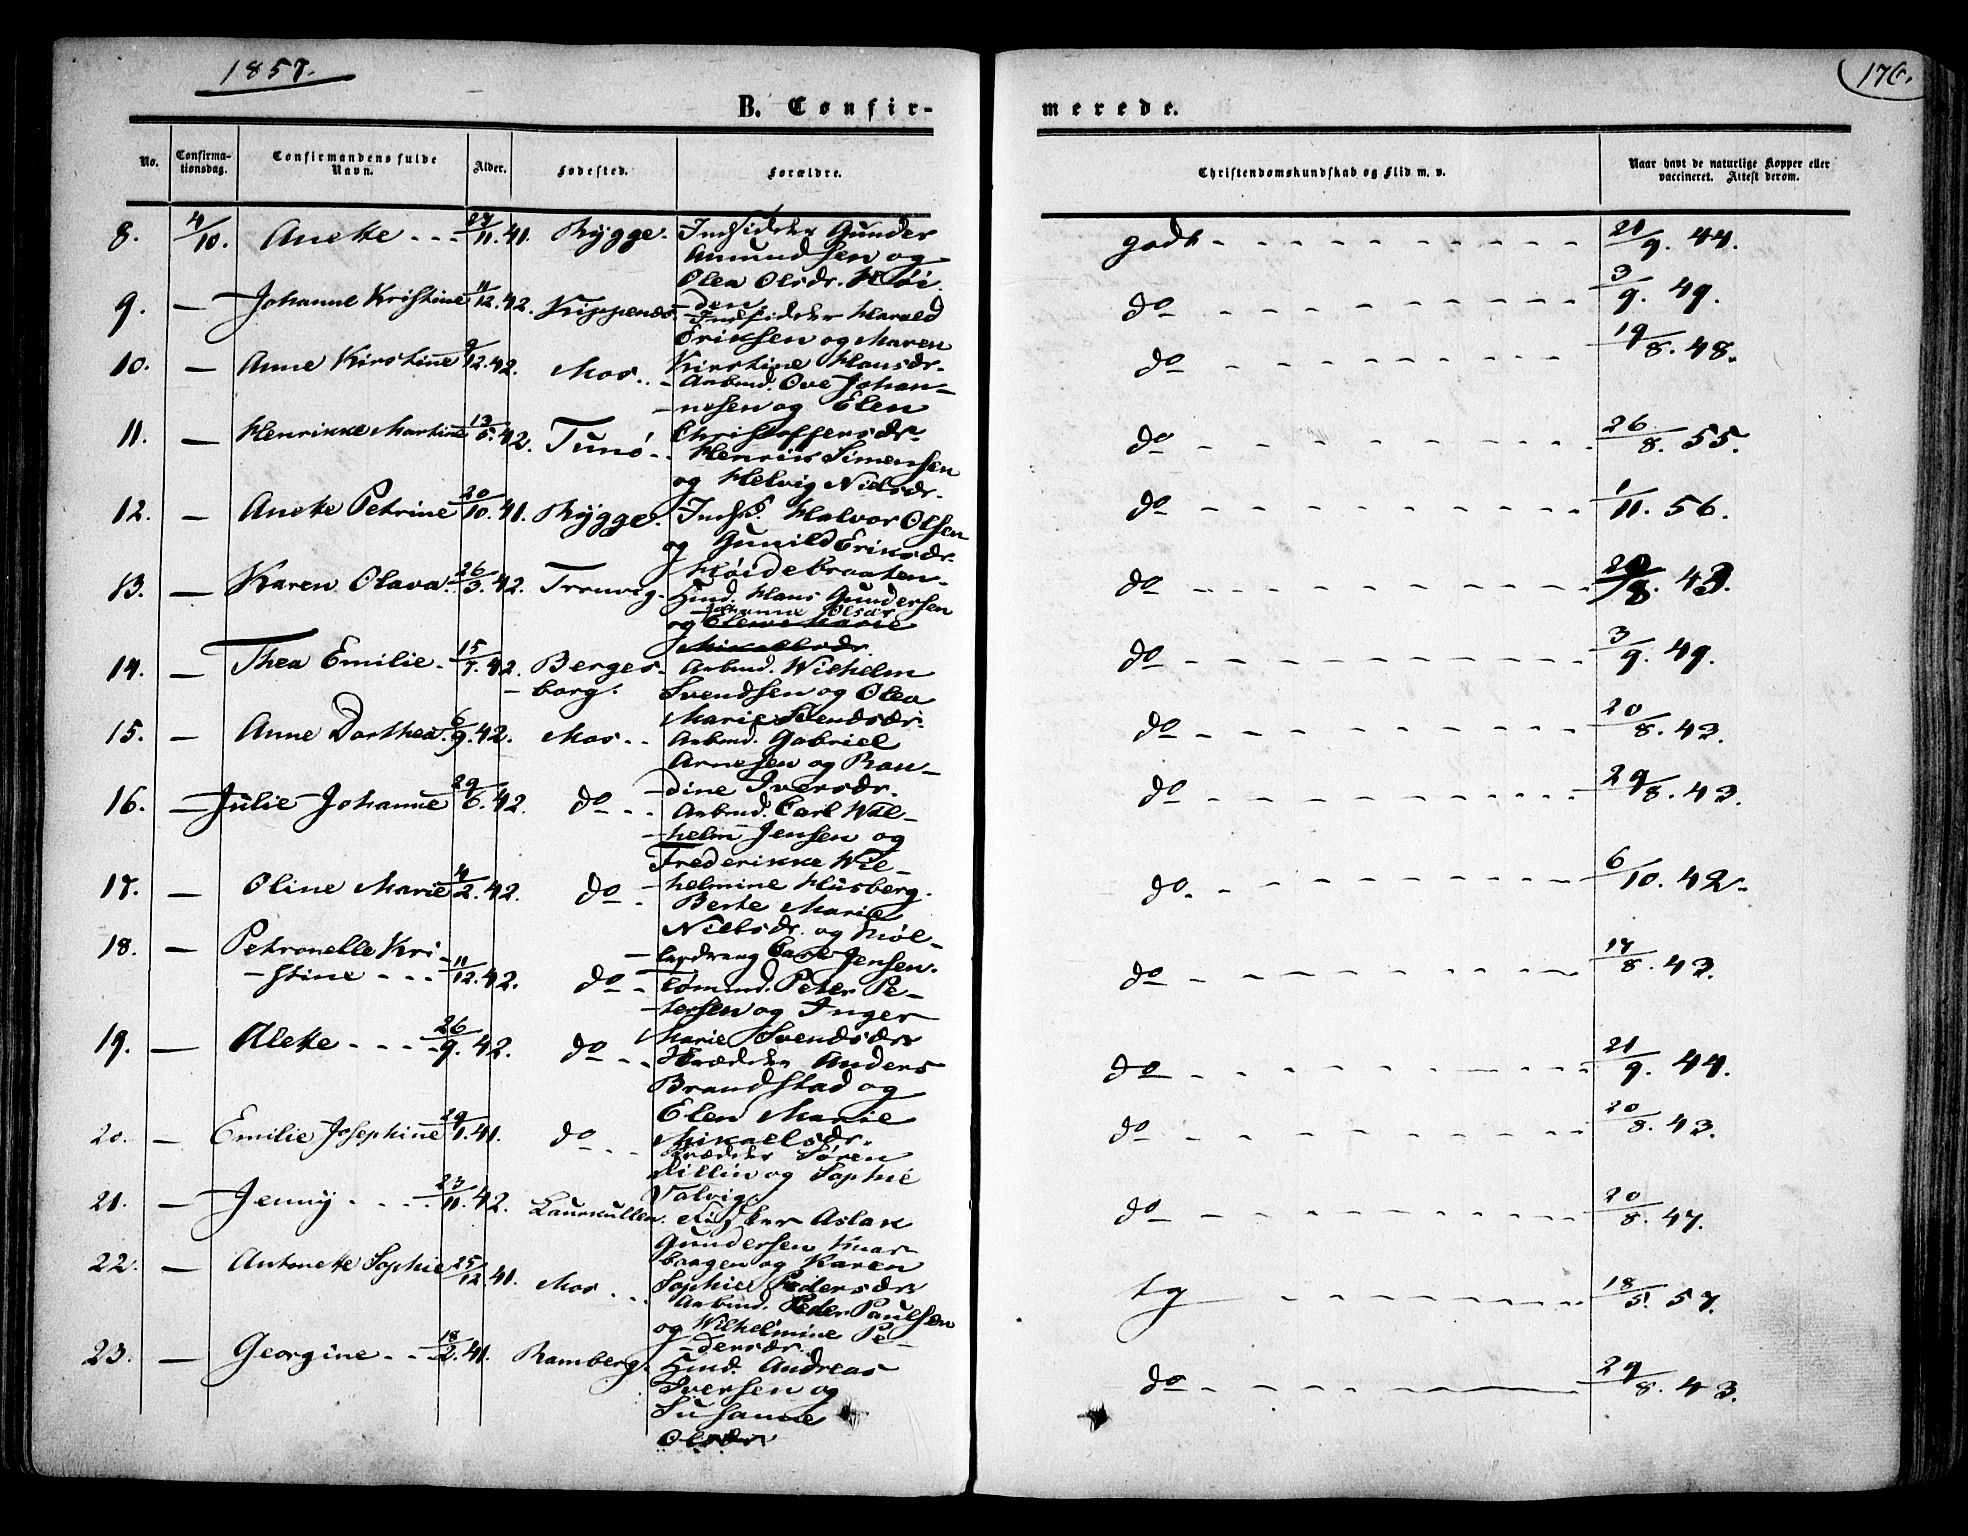 1857.
176.
B. Confir-
merede.
No.
Confirma-
tionsdag.
Confirmandens fulde
Navn.
Alder.
Fødested.
Forældre.
Christendomskundskab og Flid m. v.
Naar havt de naturlige Kopper eller
vaccineret. Attest derom.
8. 4/10. Anette - - - 27/11. 41. Rygge. Indsidder Gunder
Amundsen og
Olea Olsdr. Høi
godt - - - 21/9. 44.
9. — Johanne Kristine 11/12. 42. Krippenes. -den.
Indsidder Harald
Eriksen og Maren
do - - - 3/9. 49.
10. — Anne Kirstine 9/12. 42. Mos.. Kirstine Hansdr.
Arbmd. Ove Johan-
-nesen og Elen
do - - - 19/8. 48.
11. — Henrikke Martine 13/5. 42. Tunø - Christoffersdr.
Henrik Simensen
og Helvig Nielsdr.
do - - - 26/8. 55.
12. — Anette Petrine 20/10. 41. Rygge. Inds. Halvor Olsen
og Gunild Eriksdr.
Høidebraaten.
do - - - 1/11. 56.
13. — Karen Olava. 26/3. 42. Tronvig. Hmd. Hans Gundersen
Johanne Olsdr
og Elene Marie
Mikaelsdr.
do - - - 8. 43.
14. — Thea Emilie. 15/7. 42. Berges-
-borg. Arbmd. Wilhelm
Svendsen og Olea
Marie Svendsdr.
do - - - 3/9. 49.
15. — Anne Dorthea. 6/9. 42. Mos. . Arbmd. Gabriel
Arnesen og Ran-
-dine Iversdr.
do - - - 20/8. 43.
16. — Julie Johanne 29/6. 42. do - - Arbmd. Carl Wil-
-helm Jensen og
Frederikke Wil-
-helmine Husberg.
do - - - 29/8. 43.
17. — Oline Marie 4/2. 42. do - Berte Marie
Nielsdr. og Møl-
-lerdreng Carl Jensen.
do. - - - 6/10. 42.
18. — Petronelle Kri-
-stine - - - 11/12. 42. do - Tømmd. Peter Pe-
-tersen og Inger
Marie Svendsdr
do - - - 17/8. 43.
19. — Alette - - - - 26/9. 42. do - - Skrædder Anders
Brandstad og
Elen Marie
Mikaelsdr.
do - - - 21/9. 44.
20. — Emilie Josephine 29/1. 41. do - - Skrædder Søren
Killin og Sophie
Valvig.
do - - - 20/8. 43.
21. — Jenny - - - - 23/11. 42. Laurkullen. Fisker Aslak
Gundersen Knar-
baagen og Karen
Sophie Pedersdr
do - - - 20/8. 47.
22. — Antonette Sophie 25/12. 41. Mos - - - Arbmd. Peder Paulsen
og Wilhelmine Pe-
-dersdr.
tg - - - 18/5. 57.
23. — Georgine - - - 18/2. 41. Ramberg. Hmd. Andreas
Iversen og
Susanne
Olsdr.
do - - - 29/8. 43.